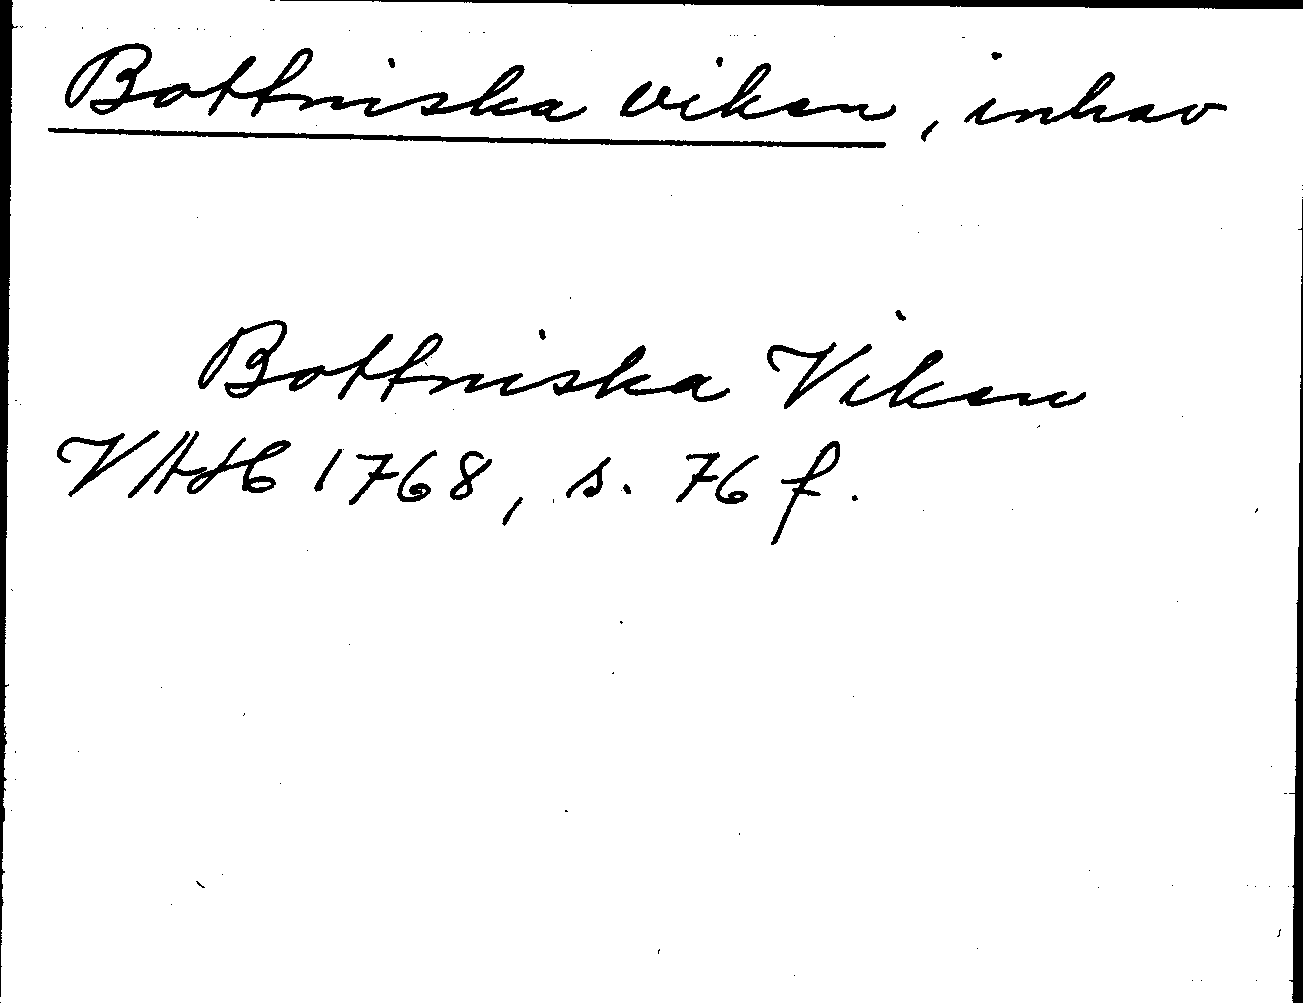 Bottniska viken, inhav
Bottniska Viken
VAH 1768, s. 76 f.